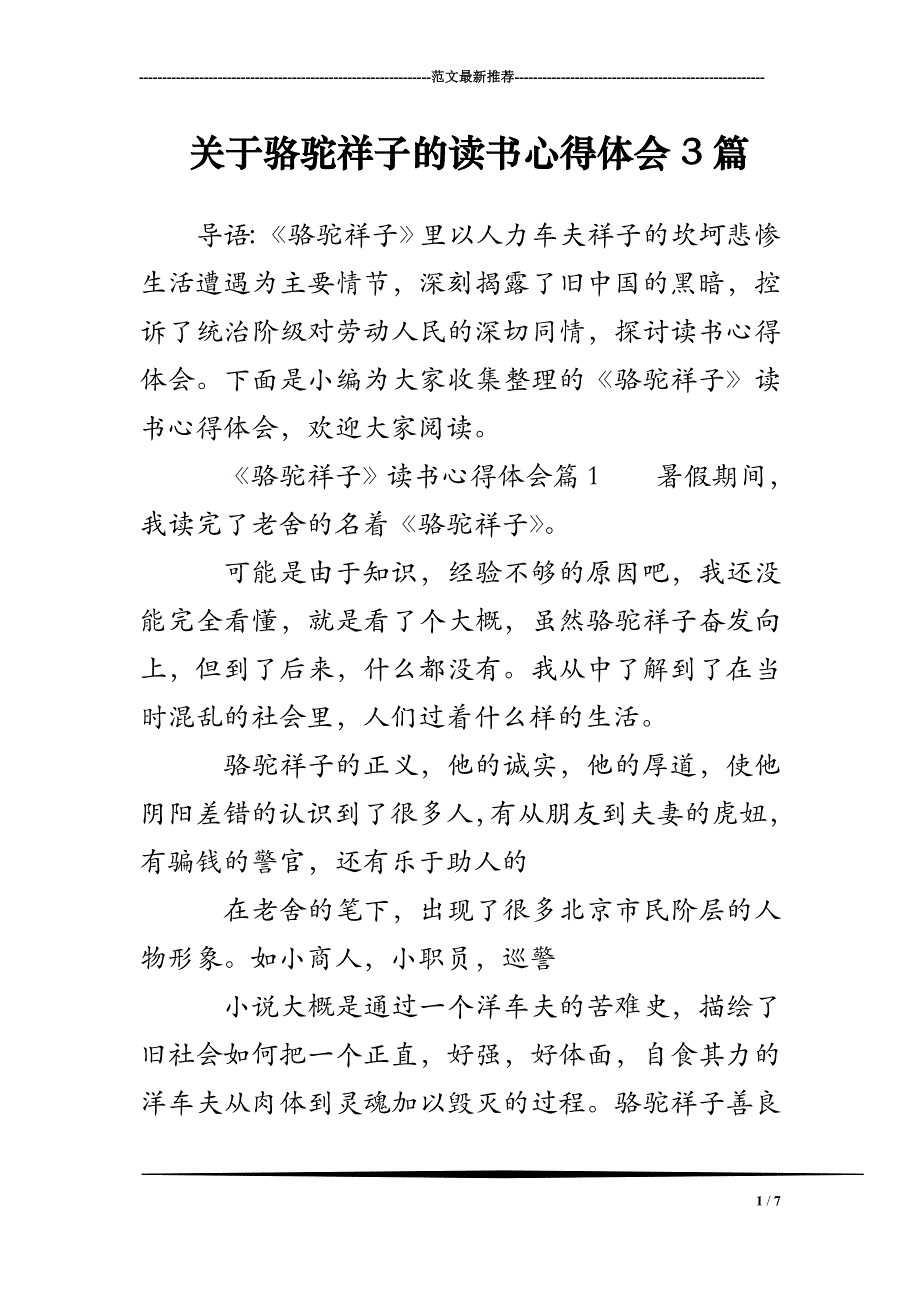 ---------------------------------------------------------------范文最新推荐------------------------------------------------------
关于骆驼祥子的读书心得体会 3 篇
导语:《骆驼祥子》里以人力车夫祥子的坎坷悲惨
生活遭遇为主要情节，深刻揭露了旧中国的黑暗，控
诉了统治阶级对劳动人民的深切同情，探讨读书心得
体会。下面是小编为大家收集整理的《骆驼祥子》读
书心得体会，欢迎大家阅读。
《骆驼祥子》读书心得体会篇 1　　暑假期间，
我读完了老舍的名着《骆驼祥子》。
可能是由于知识，经验不够的原因吧，我还没
能完全看懂，就是看了个大概，虽然骆驼祥子奋发向
上，但到了后来，什么都没有。我从中了解到了在当
时混乱的社会里，人们过着什么样的生活。
骆驼祥子的正义，他的诚实，他的厚道，使他
阴阳差错的认识到了很多人，有从朋友到夫妻的虎妞，
有骗钱的警官，还有乐于助人的
在老舍的笔下，出现了很多北京市民阶层的人
物形象。如小商人，小职员，巡警
小说大概是通过一个洋车夫的苦难史，描绘了
旧社会如何把一个正直，好强，好体面，自食其力的
洋车夫从肉体到灵魂加以毁灭的过程。骆驼祥子善良
1 / 7